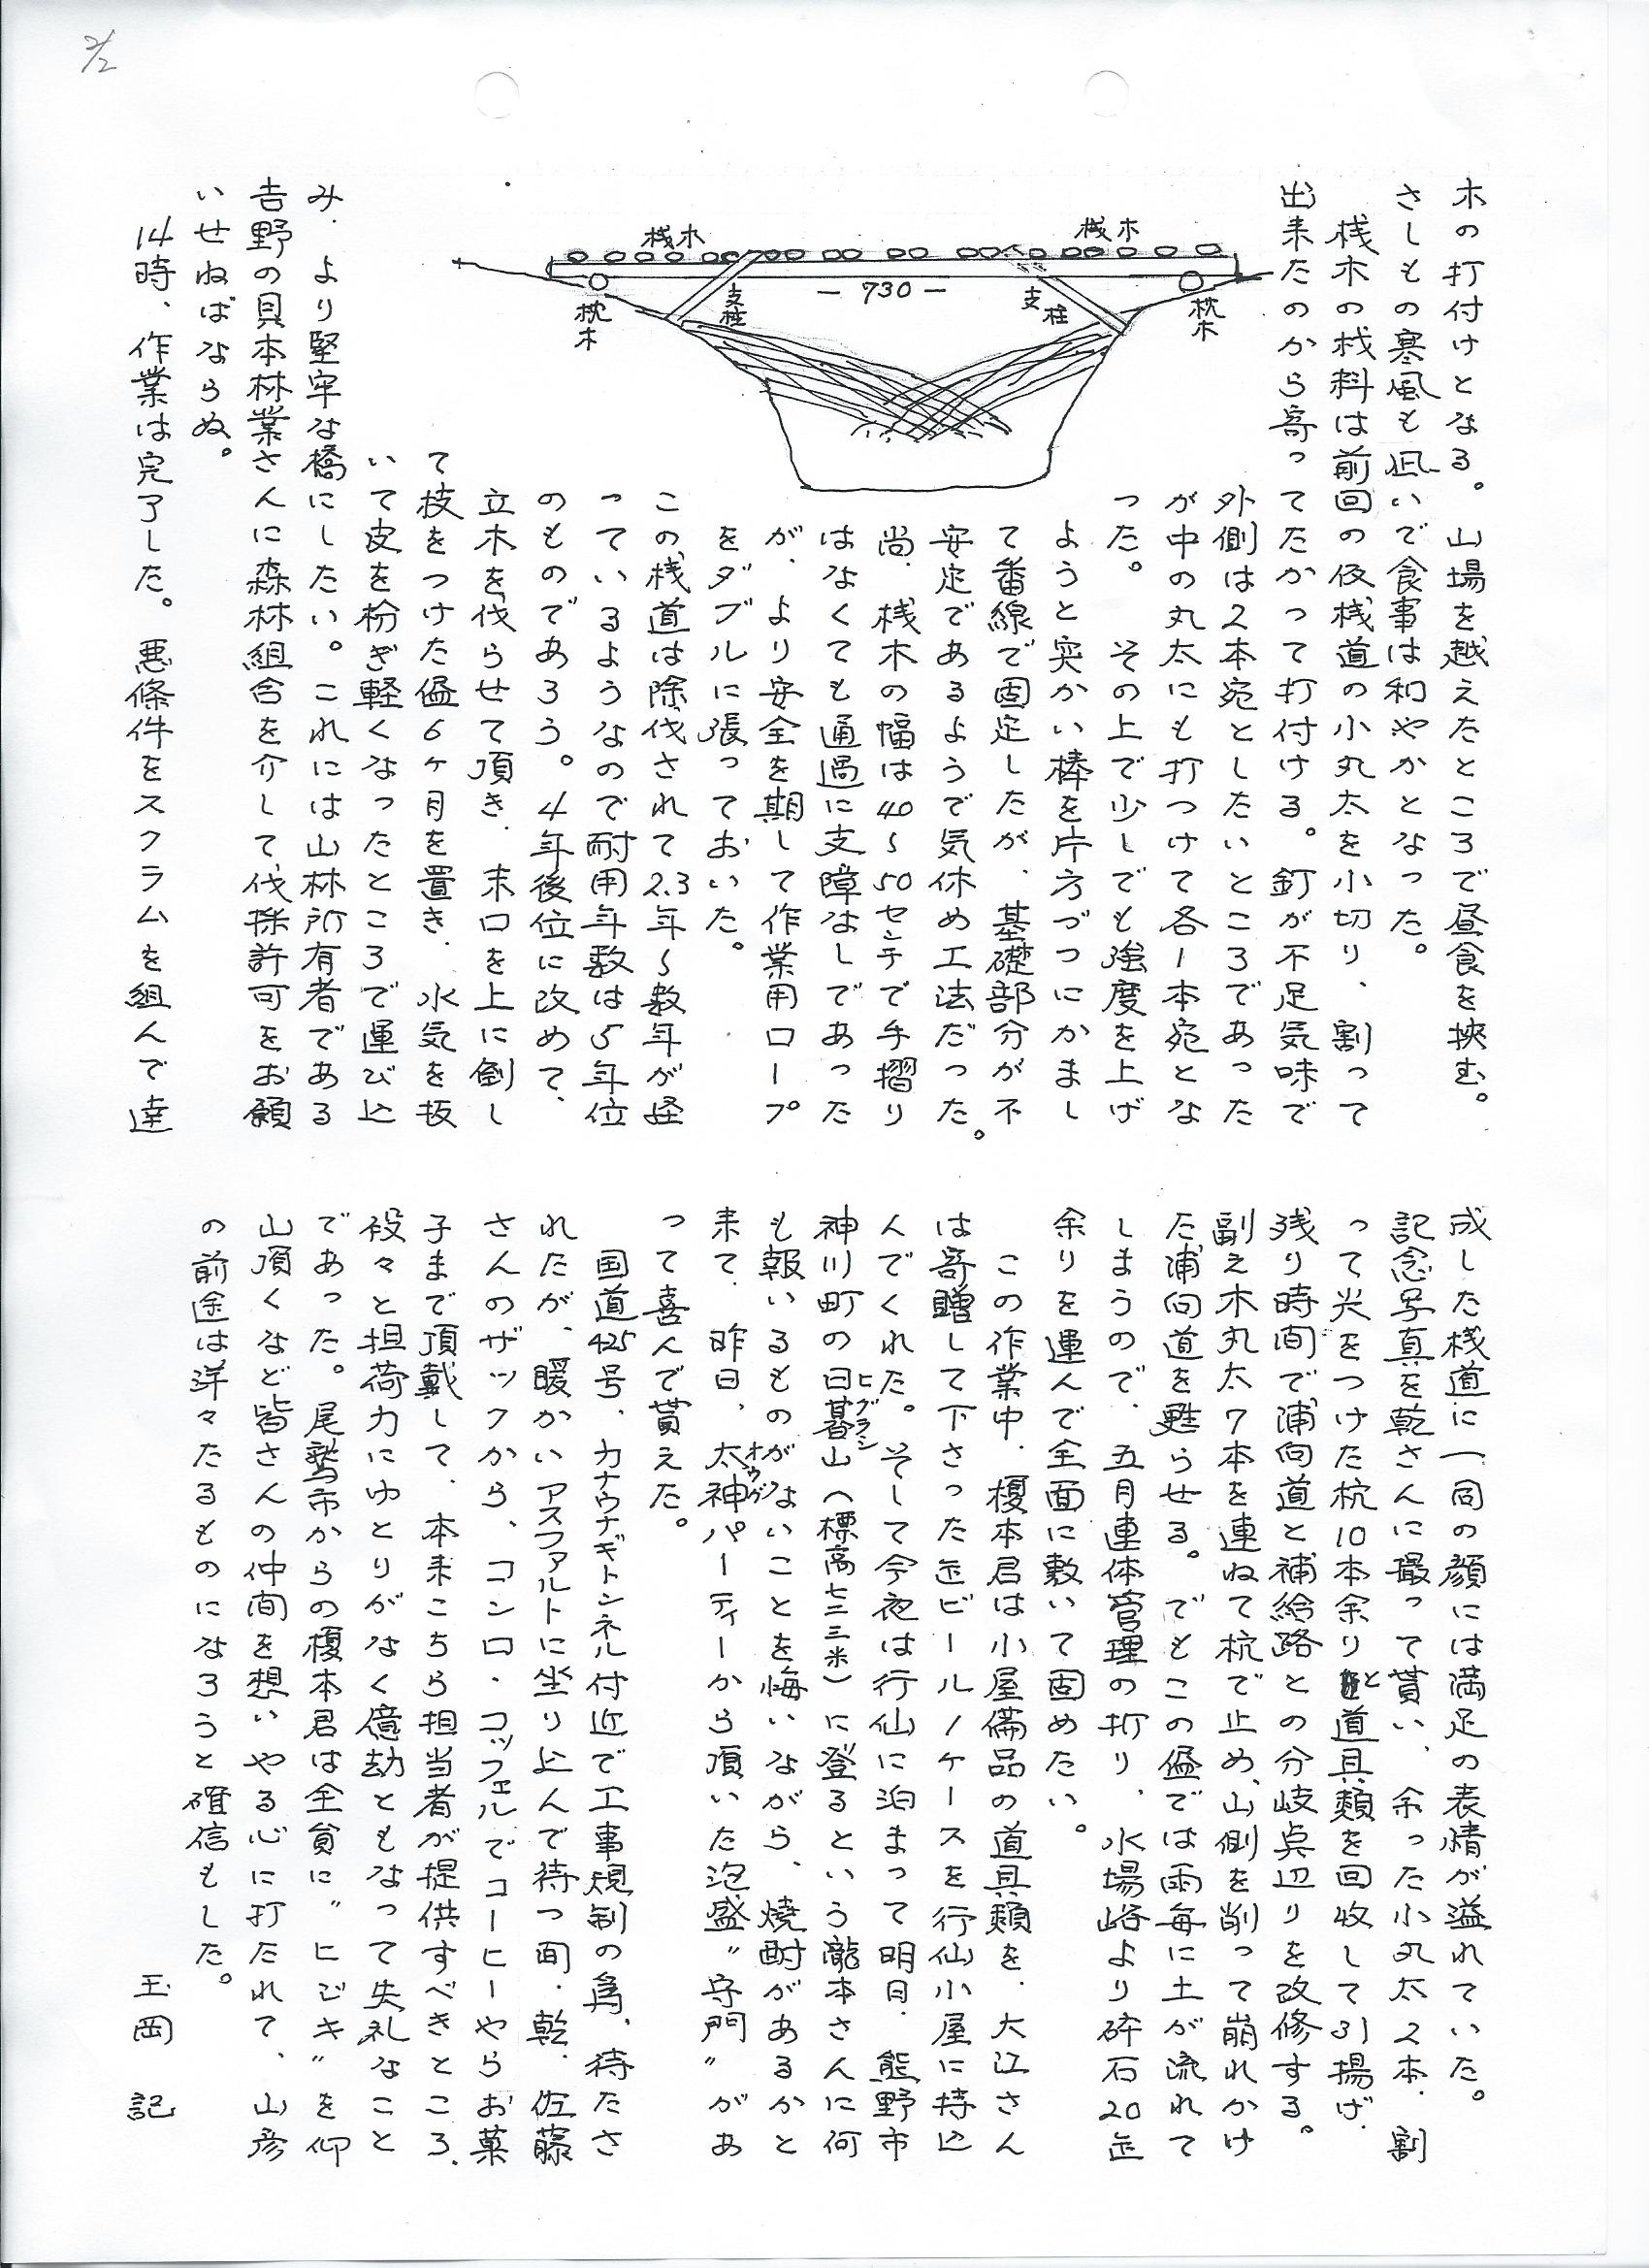 2/2
木の打付けとなる。山場を越えたところで昼食を挟む。
さしもの寒風も凪いで食事は和やかとなった。
桟木の材料は前回の仮桟道の小丸太を小切り、割って
出来たのから寄ってたかって打付ける。釘が不足気味で
外側は2本宛としたいところであった
が中の丸太にも打つけて各1本宛とな
った。その上で少しでも強度を上げ
ようと突かい棒を片方づつにかまし
て番線で固定したが、基礎部分が不
安定であるようで気休め工法だった。
尚、桟木の幅は40〜50センチで手摺り
はなくても通過に支障はなしであった
が、より安全を期して作業用ロープ
をダブルに張っておいた。
この桟道は除伐されて2.3年〜数年が経
っているようなので耐用年数は5年位
のものであろう。4年後位に改めて、
立木を伐らせて頂き、末口を上に倒し
て枝をつけた儘6ヶ月を置き、水気を抜
いて皮を枌ぎ軽くなったところで運び込
み、より堅牢な橋にしたい。これには山林所有者である
吉野の貝本林業さんに森林組合を介して伐採許可をお願
いせねばならぬ。
14時、作業は完了した。悪條件をスクラムを組んで達
桟木
桟木
枕木
支柱
－730－
支柱
枕木
成した桟道に一同の顔には満足の表情が溢れていた。
記念写真を乾さんに撮って貰い、余った小丸太2本、割
って尖をつけた杭10本余りと道具類を回収して引揚げ、
残り時間で浦向道と補給路との分岐点辺りを改修する。
副え木丸太7本を連ねて杭で止め、山側を削って崩れかけ
た浦向道を甦らせる。でもこの儘では雨毎に土が流れて
しまうので、五月連体管理の打り、水場峪より砕石20缶
余りを運んで全面に敷いて固めたい。
この作業中、榎本君は小屋備品の道具類を、大江さん
は寄贈して下さった缶ビール1ケースを行仙小屋に持込
んでくれた。そして今夜は行仙に泊まって明日、熊野市
神川町の日暮山（標高七三三米）に登るという瀧本さんに何
ヒグラシ
も報いるものがないことを悔いながら、焼酎があるかと
来て、昨日、太神パーティーから頂いた泡盛〝守門〟があ
オウガ
って喜んで貰えた。
国道425号、カナウナギトンネル付近で工事規制の為、待たさ
れたが、暖かいアスファルトに坐り込んで待つ間、乾、佐藤
さんのザックから、コンロ、コッフェルでコーヒーやらお菓
子まで頂戴して、本来こちら担当者が提供すべきところ、
段々と担荷力にゆとりがなく億劫ともなって失礼なこと
であった。尾鷲市からの榎本君は全員に〝ヒジキ〟を仰
山頂くなど皆さんの仲間を想いやる心に打たれて、山彦
の前途は洋々たるものになろうと確信もした。
玉岡　記